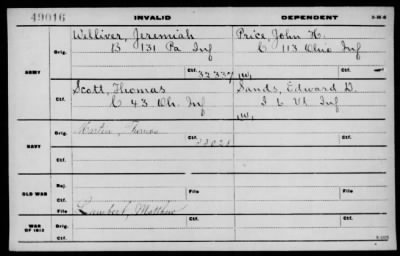 49016 INVALID DEPENDENT 3-35-6
ARMY
Orig. Welliver, Jeremiah Price, John H.
B 131 Pa Inf C 113 Ohio Inf
Ctf. 32337 W,
Scott, Thomas Sands, Edward D.
Ctf. C 43 Oh. Inf I 6 Vt Inf
W,
NAVY
Orig. Thomas
Ctf. Ctf.
OLD WAR
Rej.
File File
Lambert, Matthew
WAR OF 1812
Orig.
Ctf.